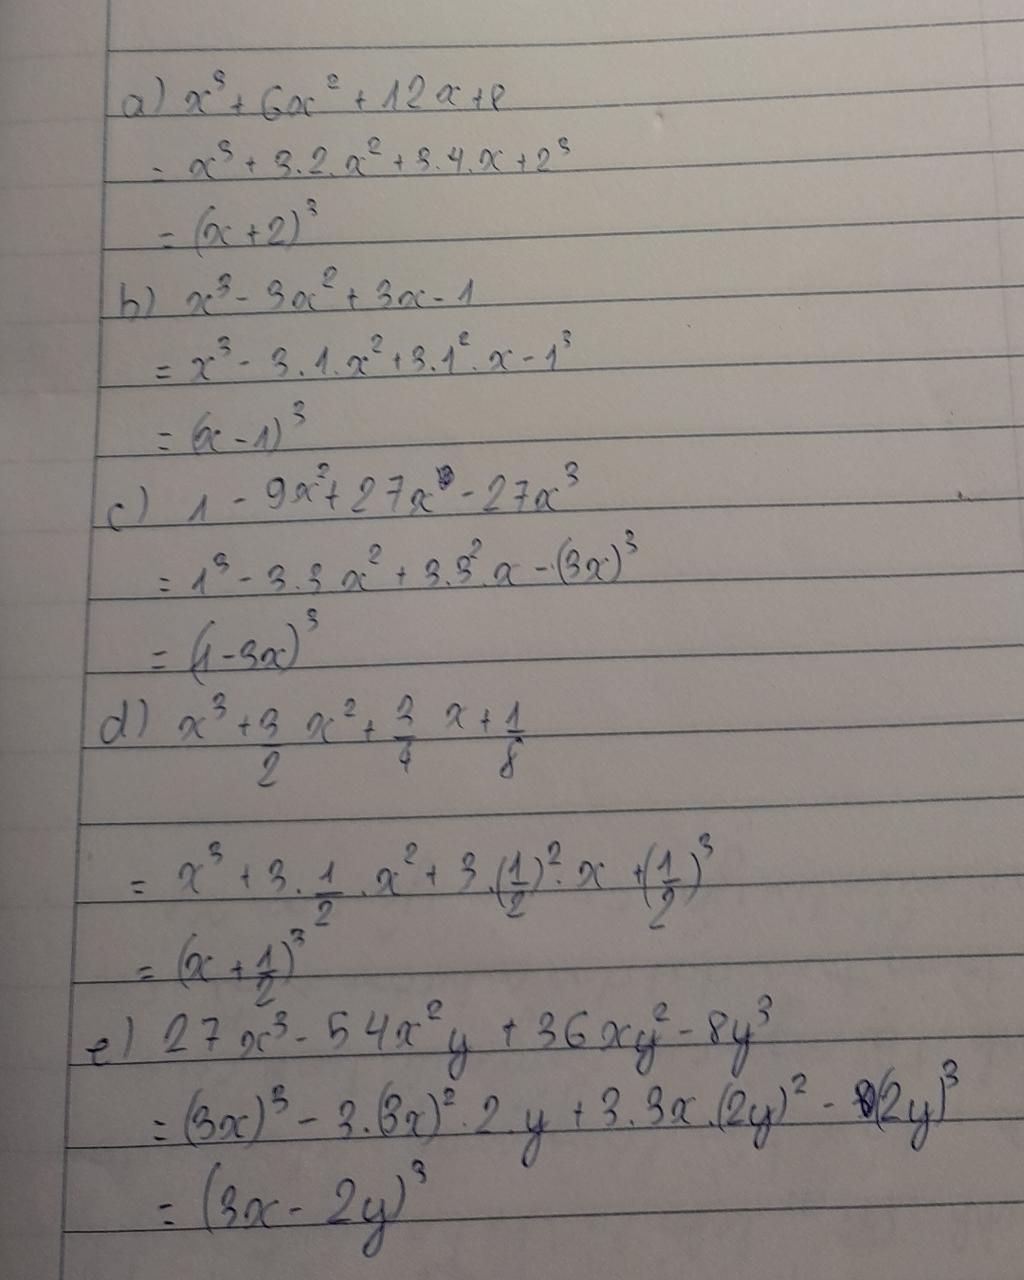 a) x³ + 6x² + 12x + 8
= x³ + 3.2.x² + 3.4.x + 2³
= (x + 2)³
b) x³ - 3x² + 3x - 1
= x³ - 3.1.x² + 3.1².x - 1³
= (x - 1)³
c) 1 - 9x² + 27x - 27x³
= 1³ - 3.3 x² + 3.3².x - (3x)³
= (1 - 3x)³
d) x³ + 3/2 x² + 3/4 x + 1/8
= x³ + 3.1/2.x² + 3.(1/2)².x + (1/2)³
= (x + 1/2)³
e) 27x³ - 54x²y + 36xy² - 8y³
= (3x)³ - 3.(3x)².2.y + 3.3x.(2y)² - (2y)³
= (3x - 2y)³